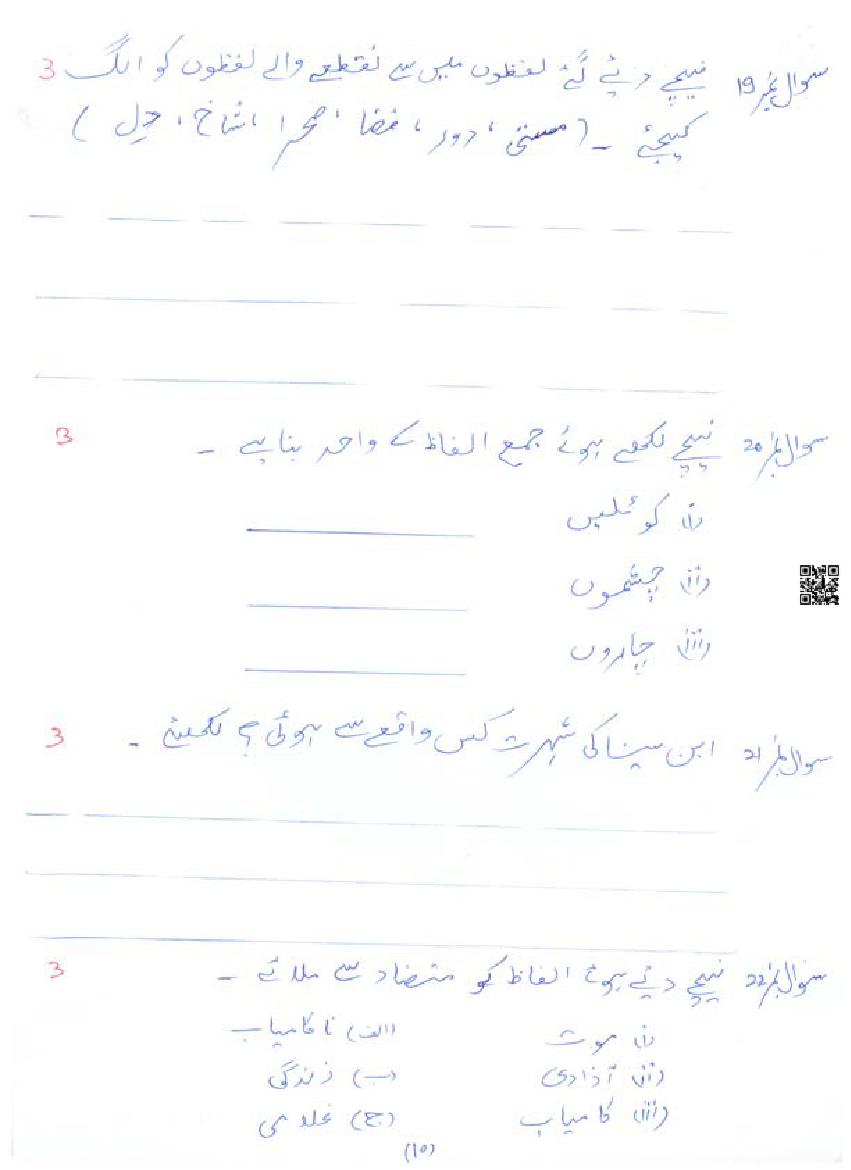 سوال نمبر 19 نیچے دیئے گئے لفظوں میں سے نقطے والے لفظوں کو الگ 3
کیجئے ۔ ( مستی ، دور ، فضا ، صحرا ، شاخ ، دِل )
سوال نمبر 20 نیچے لکھے ہوئے جمع الفاظ کے واحد بنایے ۔ 3
(i) کوئلیں
(ii) چشموں
(iii) چاروں
سوال نمبر 21 ابن سینا کی شہرت کس واقعے سے ہوئی؟ لکھیئے ۔ 3
سوال نمبر 22 نیچے دیئے ہوئے الفاظ کو متضاد سے ملائے ۔ 3
(i) موت (الف) ناکامیاب
(ii) آذادی (ب) زندگی
(iii) کامیاب (ج) غلامی
(10)